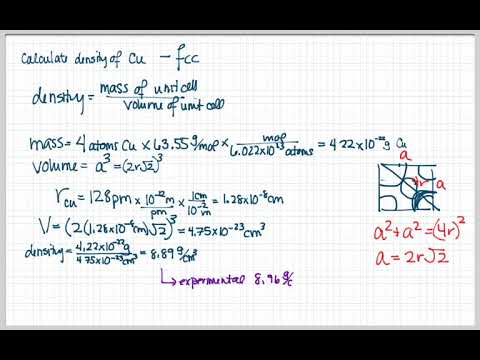 Calculate density of Cu - fcc
density = mass of unit cell / volume of unit cell
mass = 4 atoms Cu × 63.55 g/mol × mol / 6.022×10²³ atoms = 4.22×10⁻²² g Cu
volume = a³ = (2r√2)³
a
4r a
r Cu = 128 pm × 10⁻¹² m / pm × 1 cm / 10⁻² m = 1.28×10⁻⁸ cm
V = (2(1.28×10⁻⁸ cm)√2)³ = 4.75×10⁻²³ cm³
a² + a² = (4r)²
a = 2r√2
density = 4.22×10⁻²² g / 4.75×10⁻²³ cm³ = 8.89 g/cm³
↳ experimental 8.96 g/c